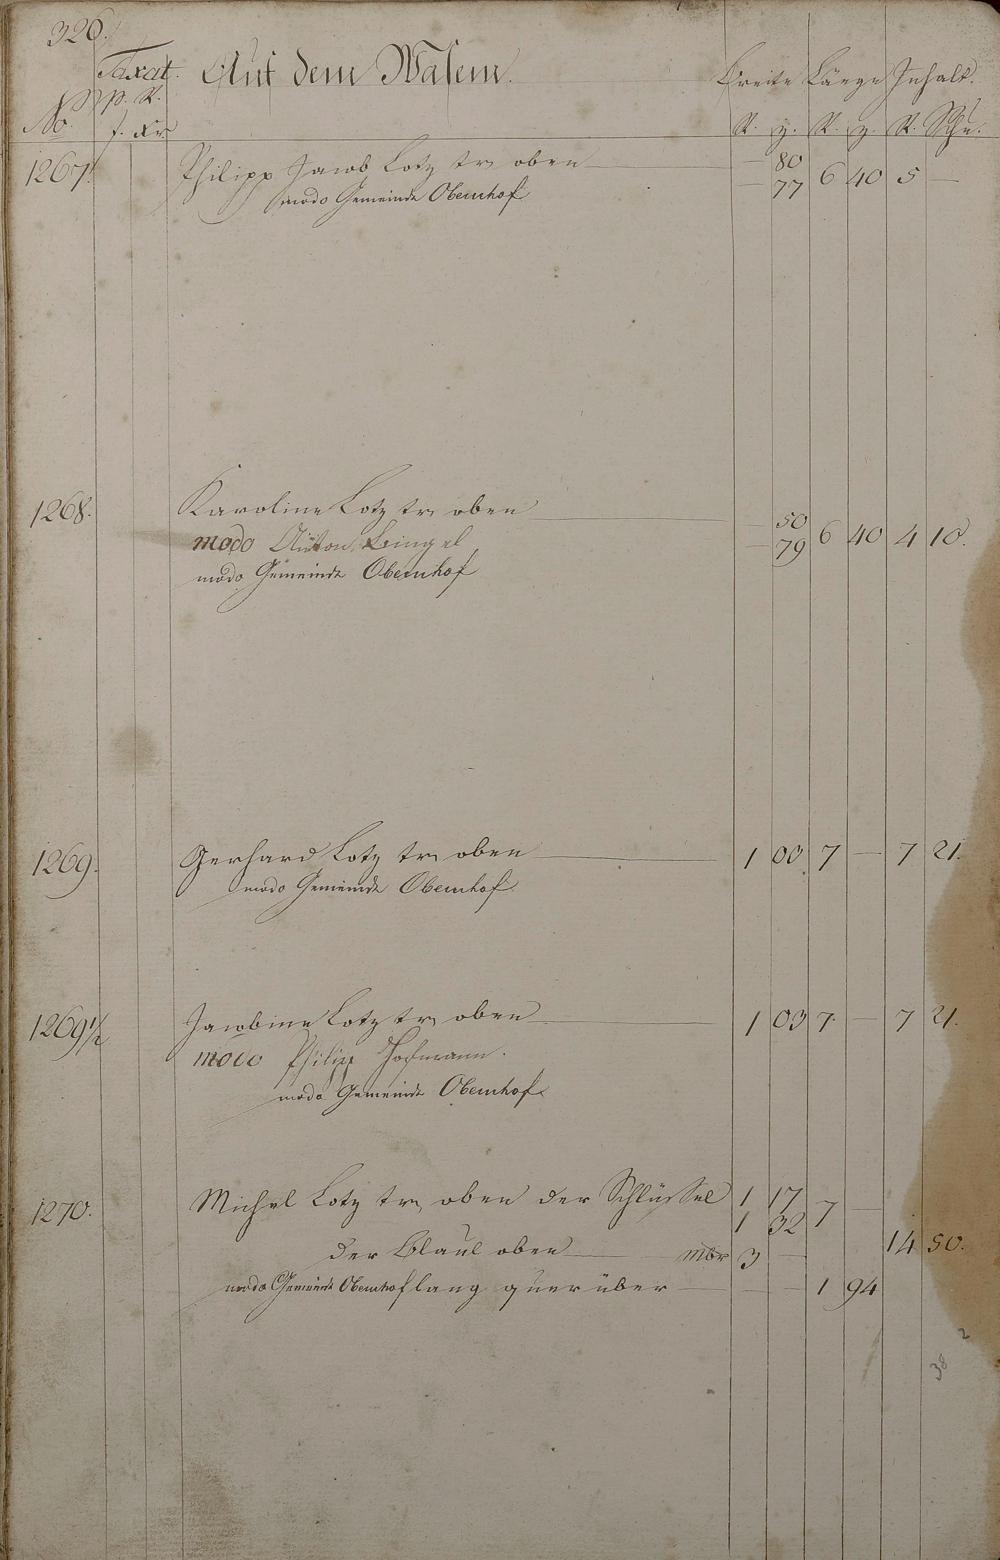 326.
Taxat. Auf dem Wasem. Breite Länge Inhalt.
No. p. R. R. z. R. z. R. Schu.
f. Xr
1267. Philipp Jacob Lotz tr oben — 80 6 40 5 —
modo Gemeinde Obernhof — 77
1268. Karoline Lotz tr oben — 50 6 40 4 10.
modo Anton Bingel — 79
modo Gemeinde Obernhof
1269. Gerhard Lotz tr oben 1 00 7 — 7 21.
modo Gemeinde Obernhof
1269½ Jacobine Lotz tr oben 1 03 7. — 7 21.
modo Philipp Hofmann.
modo Gemeinde Obernhof
1270. Michel Lotz tr oben der Schlüssel 1 17 7 —
1 32
der Blaul oben mbr 3 — 14 50.
modo Gemeinde Obernhof lang quer über — — 1 94
38 2